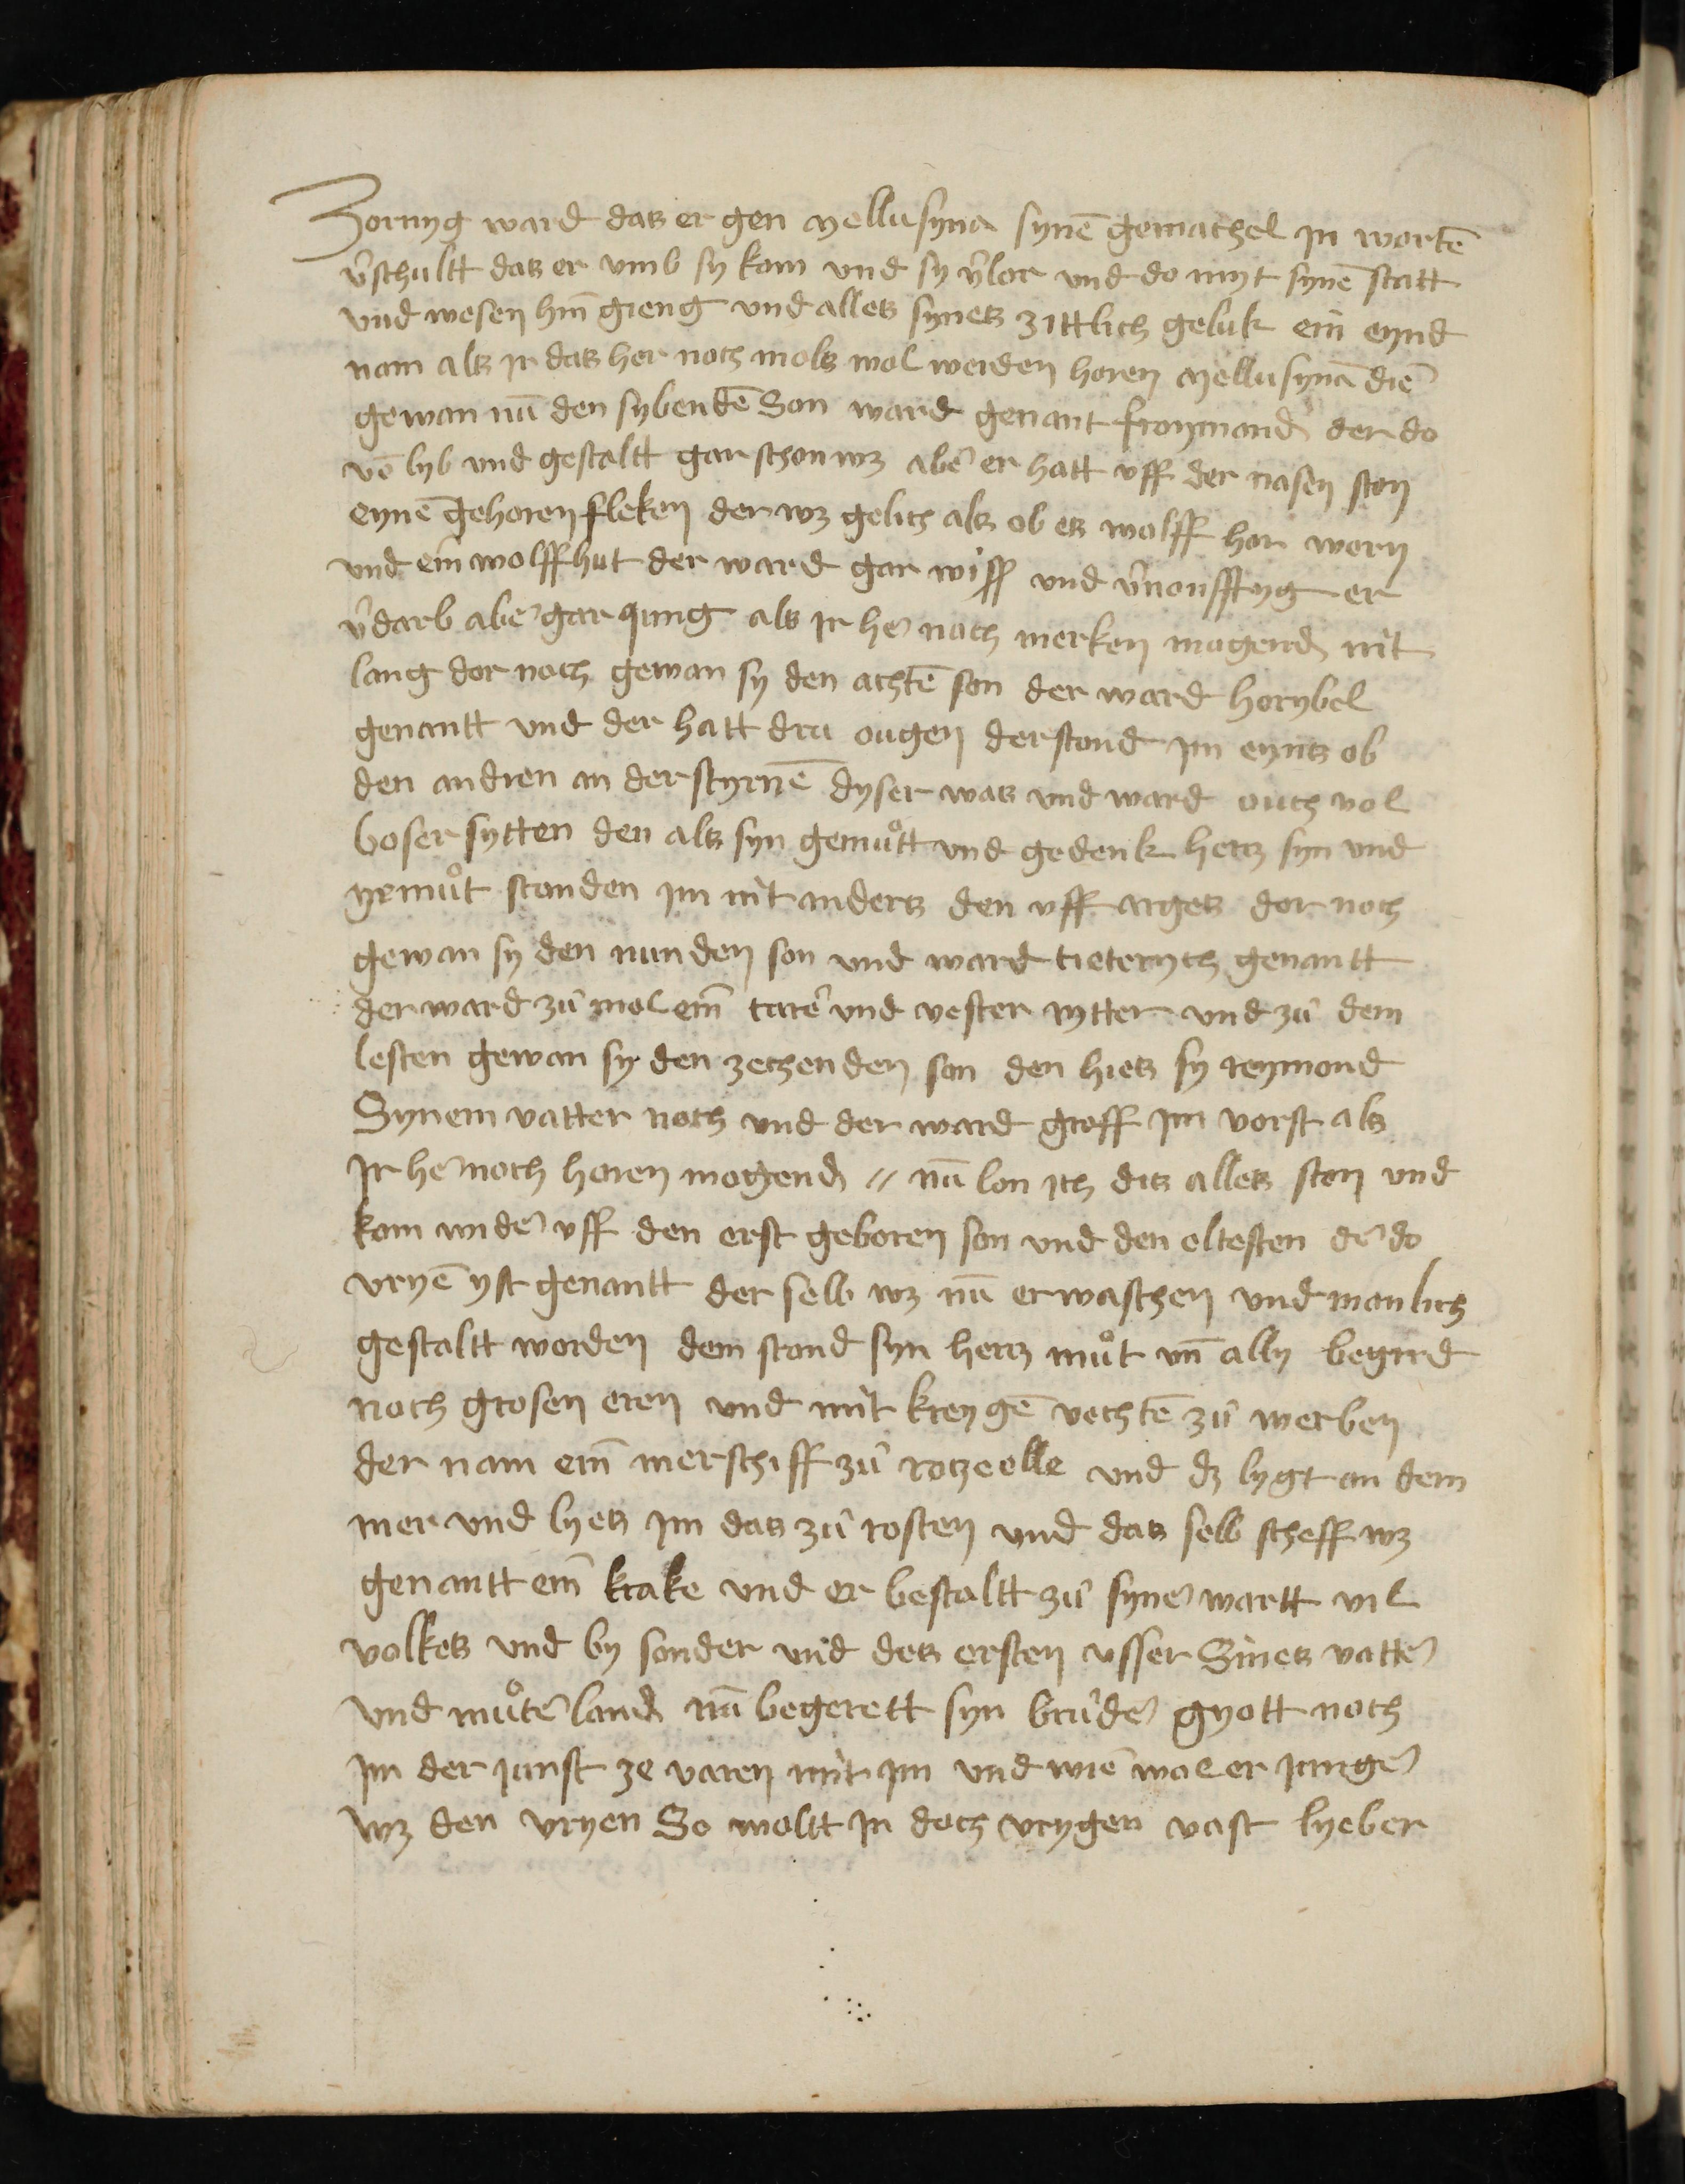 Zornyg ward das er gen mellusyna synē gemachel jn wortē
v̄schultt das er vmb sy kam vnd sy v̄lor vnd do myt synē statt
vnd wesen hin̄ gieng vnd alles synes zittlich geluk ein eynd
nam als jr das her noch mols wol werden horen mellusynā die
gewan nū den sybendē Son ward genant froymond der do
vō lyb vnd gestaltt gar schon wz abē er hatt vff der nasen ston
eynē gehoren fleken der wz gelich als ob es wolff hor worn
vnd ein wolffhut der ward gar wiss vnd v̄nonfftyg er
v̄darb abē gar jung als jr hē nach merken mogend nit
lang dor noch gewan sy den achtē son der ward horybel
genantt vnd der hatt dru ougen der stond jm eyns ob
den andren an der styrnē dyser was vnd ward ouch vol
boser sytten den als syn gemůtt vnd gedenk hertz syn vnd
gemůt stonden jm nit anders den vff arges dor noch
gewan sy den nunden son vnd ward tieterych genantt
der ward zů mol ein̄ turē vnd vester rytter vnd zů dem
lesten gewan sy den zechenden son den hies sy reymond
Synem vatter noch vnd der ward groff jm vorst als
jr hē noch horen mogend // nū lon ich dis alles ston vnd
kom widē vff den erst geboren son vnd den eltesten dē do
vryē yst genantt der selb wz nū erwaschen vnd manlich
gestaltt worden dem stond syn hertz můt vn̄ ally begird
noch grosen eren vnd mit kreygē vechtē zů werben
der nam ein̄ merschiff zů rotzeelle vnd dz lygt an dem
mer vnd lyes jm das zů rosten vnd das selb scheff wz
genantt ein̄ krake vnd er bestaltt zů synē wartt vil
volkes vnd by sonder vnd des ersten vsser Sines vattē
vnd můtē land nū begerett syn brůdē gyott noch
jm der junst ze varen mit jm vnd wie wol er jungē
wz den vryen So woltt jn doch vrygen vast lyeber